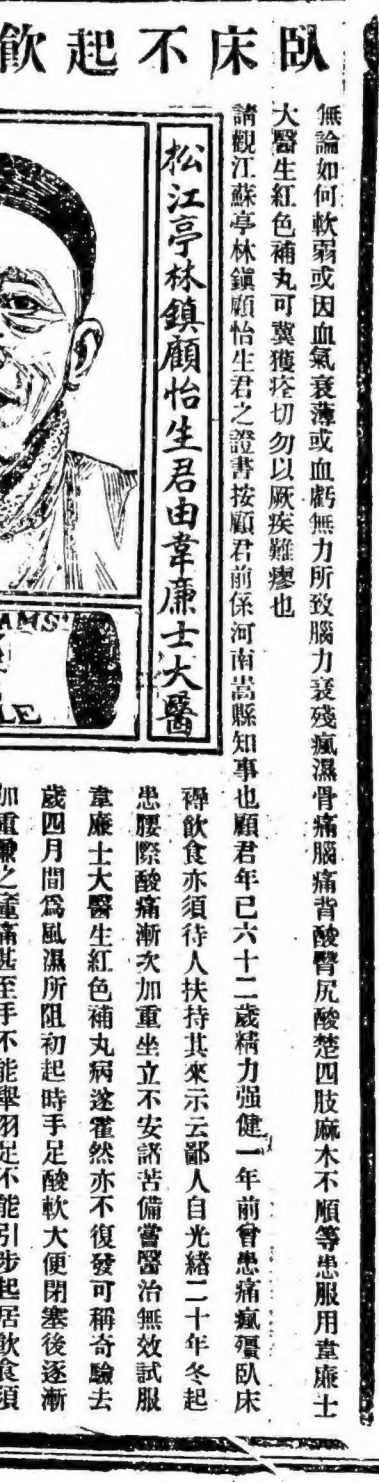 臥床不起飲
無論如何軟弱或因血氣衰薄或血虧無力所致腦力衰殘瘋濕骨痛腦痛背酸臀尻酸楚四肢麻木不順等患服用韋廉士
大醫生紅色補丸可冀獲痊切勿以厥疾難瘳也
請觀江蘇亭林鎭顧怡生君之證書按顧君前係河南嵩縣知事也顧君年已六十二歲精力强健一年前曾患痛瘋殭臥床
褥飲食亦須待人扶持其來示云鄙人自光緒二十年冬起
患腰際酸痛漸次加重坐立不安諸苦備嘗醫治無效試服
韋廉士大醫生紅色補丸病遂霍然亦不復發可稱奇驗去
歲四月間爲風濕所阻初起時手足酸軟大便閉塞後逐漸
加重 之 痛甚至手不能舉羽足不能引步起居飲食須
松江亭林鎮顧怡生君由韋廉士大醫
AMS'
LE